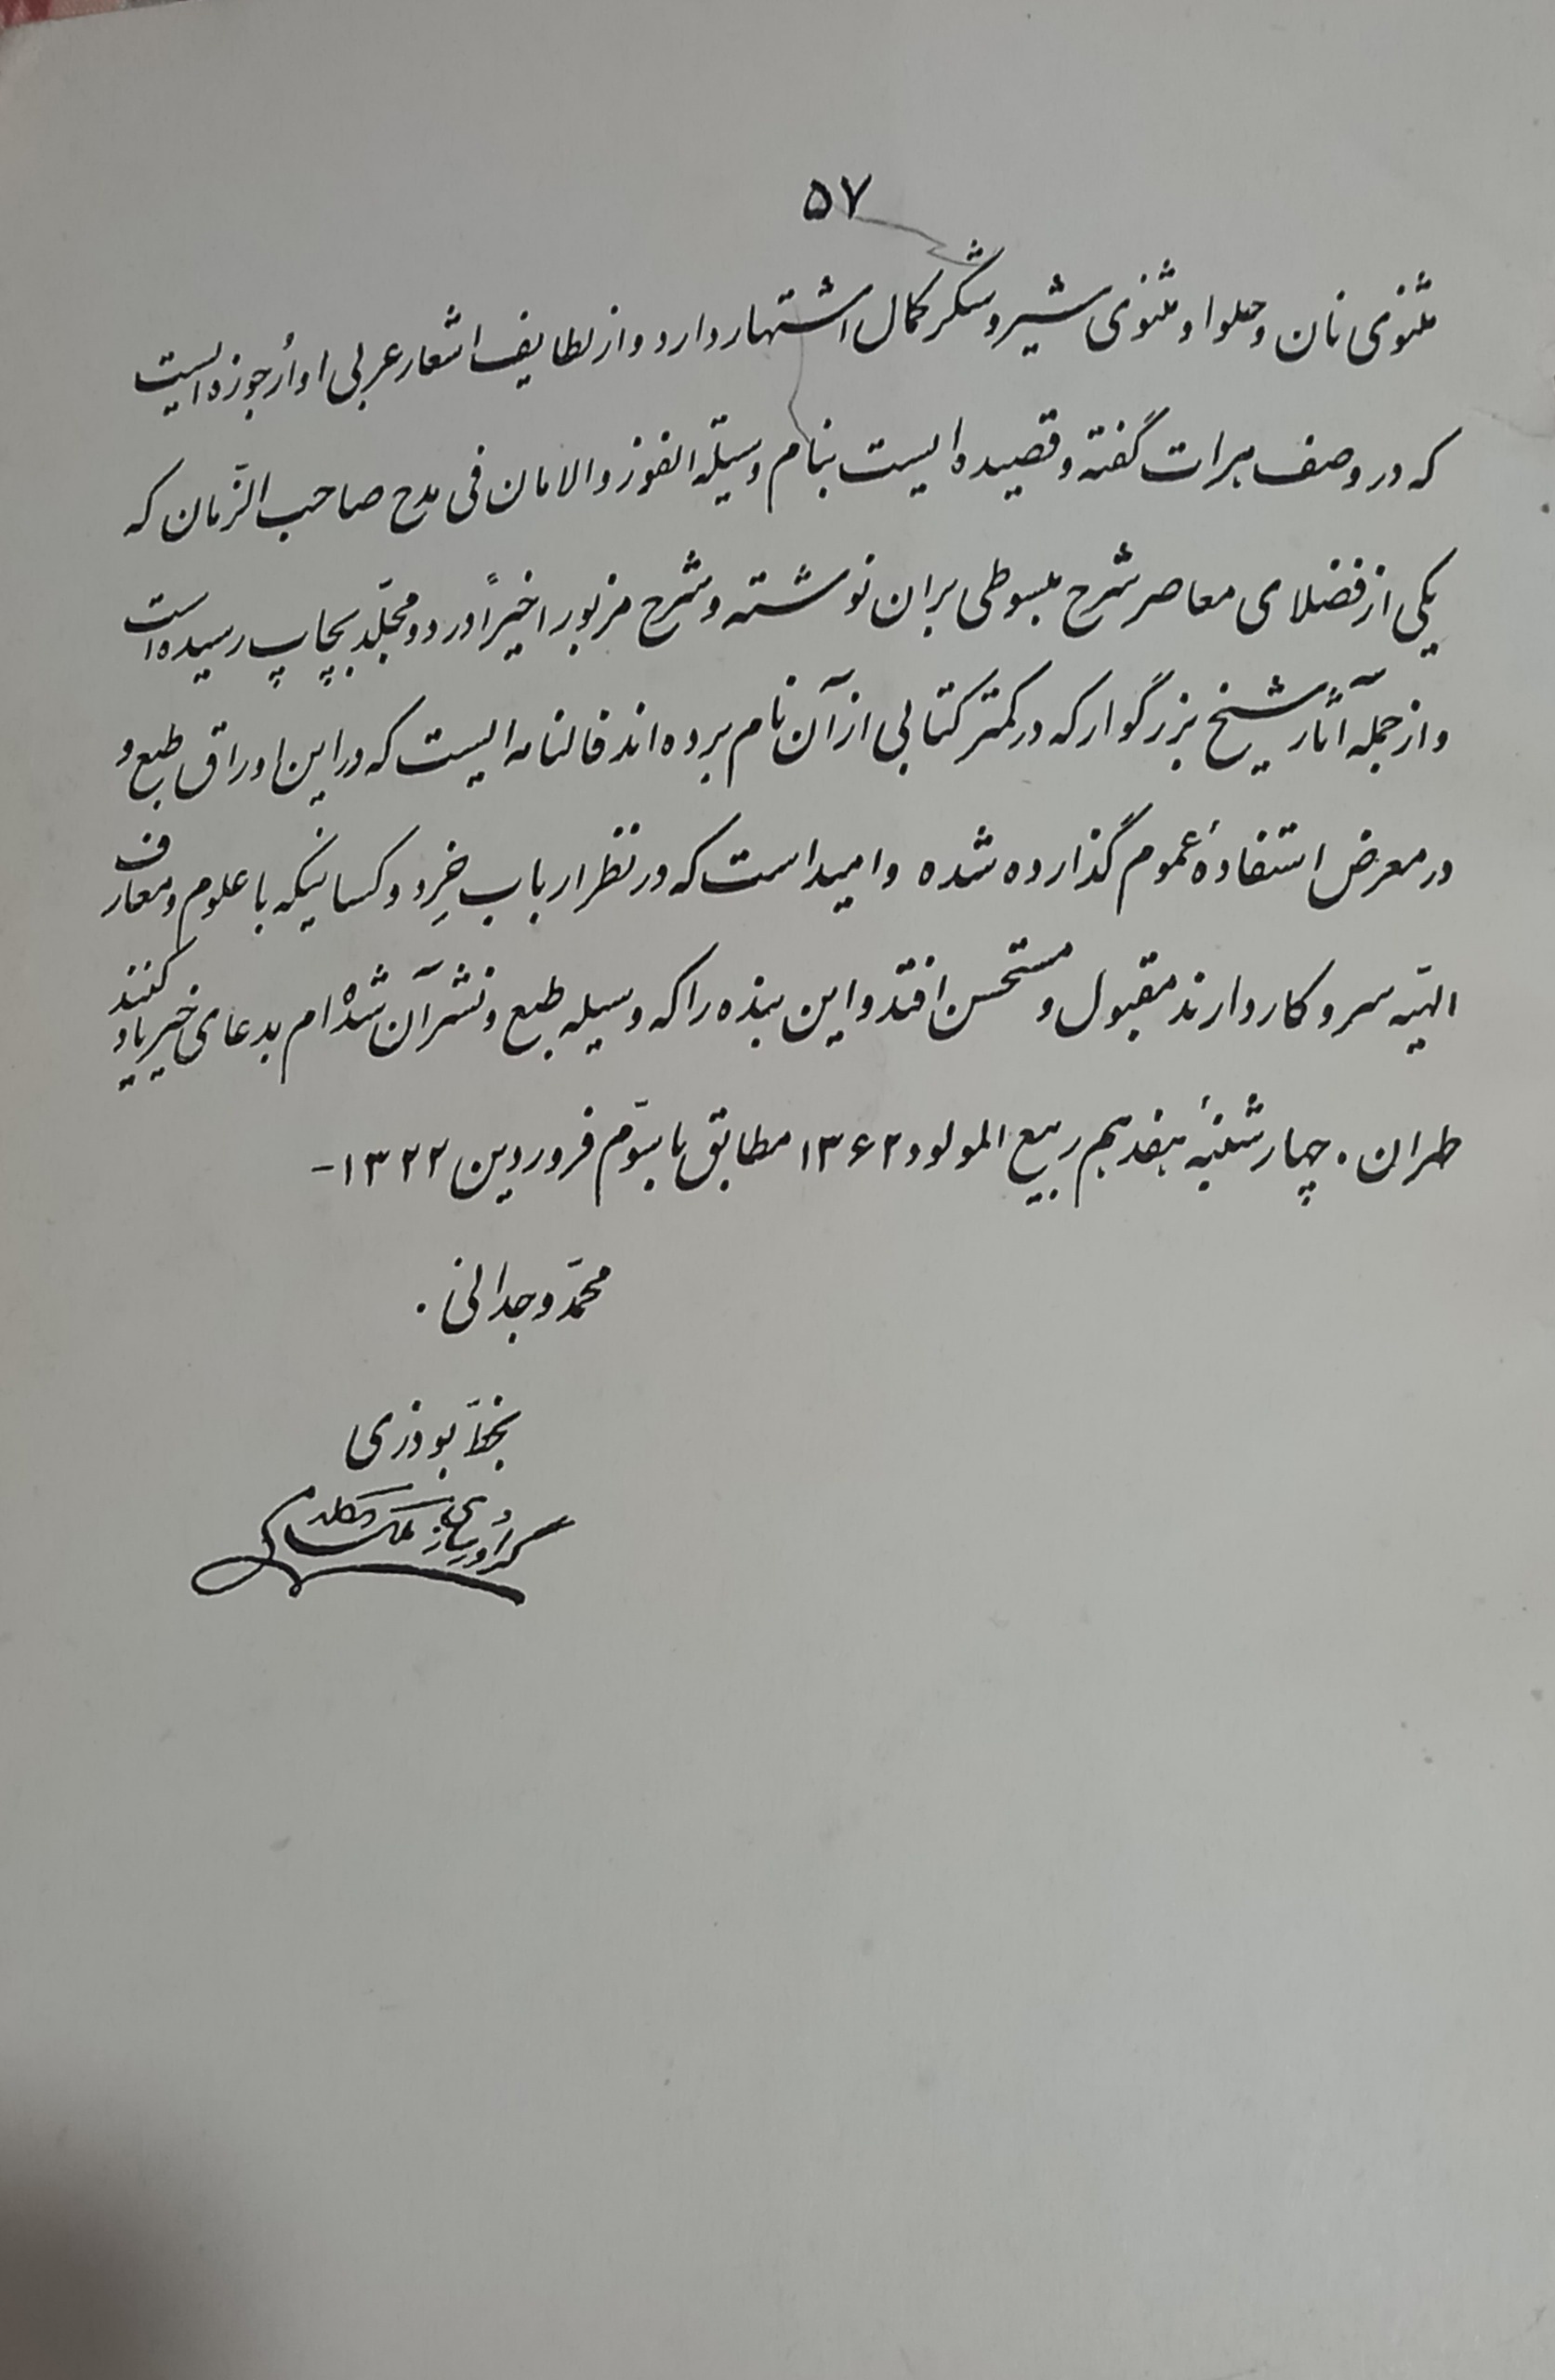 ۵۷
مثنوی نان و حلوا و مثنوی شیر و شکر کمال اشتهار دارد و از لطایف اشعار عربی او اُرجوزه ایست
که در وصف هرات گفته و قصیده ایست بنام وسیلة الفوز والامان فی مدح صاحب الزّمان که
یکی از فضلای معاصر شرح مبسوطی بران نوشته و شرح مزبور اخیراً در دو مجلّد بچاپ رسیده است
و از جمله آثار شیخ بزرگوار که در کمتر کتابی از آن نام برده اند فالنامه ایست که در این اوراق طبع و
در معرض استفادهٔ عموم گذارده شده و امید است که در نظر ارباب خِرد و کسانیکه با علوم و معارف
الهیّه سر و کار دارند مقبول و مستحسن افتد و این بنده را که وسیله طبع و نشر آن شده ام بدعای خیر یاد کنند
طهران . چهارشنبهٔ هفدهم ربیع المولود ۱۳۶۲ مطابق با سوّم فروردین ۱۳۲۲ -
محمّد وجدانی .
بخطّ بوذری